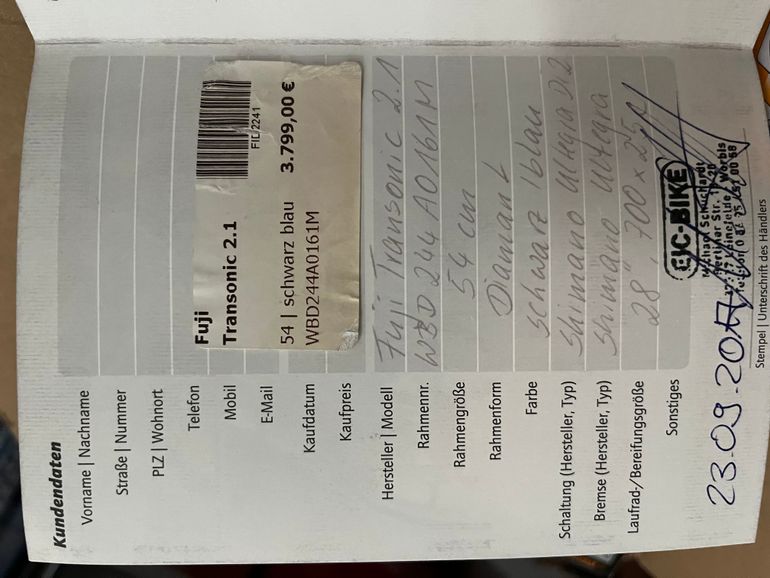 Kundendaten
Vorname | Nachname
Straße | Nummer
PLZ | Wohnort
Telefon
Mobil
E-Mail
Kaufdatum
Kaufpreis
FID/2241
Fuji
Transonic 2.1
54 | schwarz blau 3.799,00 €
WBD244A0161M
Hersteller | Modell Fuji Transonic 2.1
Rahmennr. WBD 244 A0161M
Rahmengröße 54 cm
Rahmenform Diamant
Farbe schwarz / blau
Schaltung (Hersteller, Typ) Shimano Ultegra Di2
Bremse (Hersteller, Typ) Shimano Ultegra
Laufrad-/Bereifungsgröße 28", 700 x 25
Sonstiges
EIC-BIKE
Michael Schuchardt
23.09.2017
Stempel | Unterschrift des Händlers